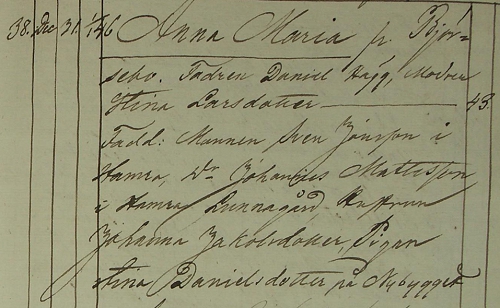 38. Dec 31. 1/1 46 Anna Maria fr. Björ=
sebo. Fadren Daniel Hägg, Modren
Stina Larsdotter 43.
Fadd: Mannen Sven Jönsson i
Hamra, Dr. Johannes Mattisson
i Hamra Lunnagård Hustrun
Johanna Jakobsdotter, Pigan
Stina Danielsdotter på Nybygget